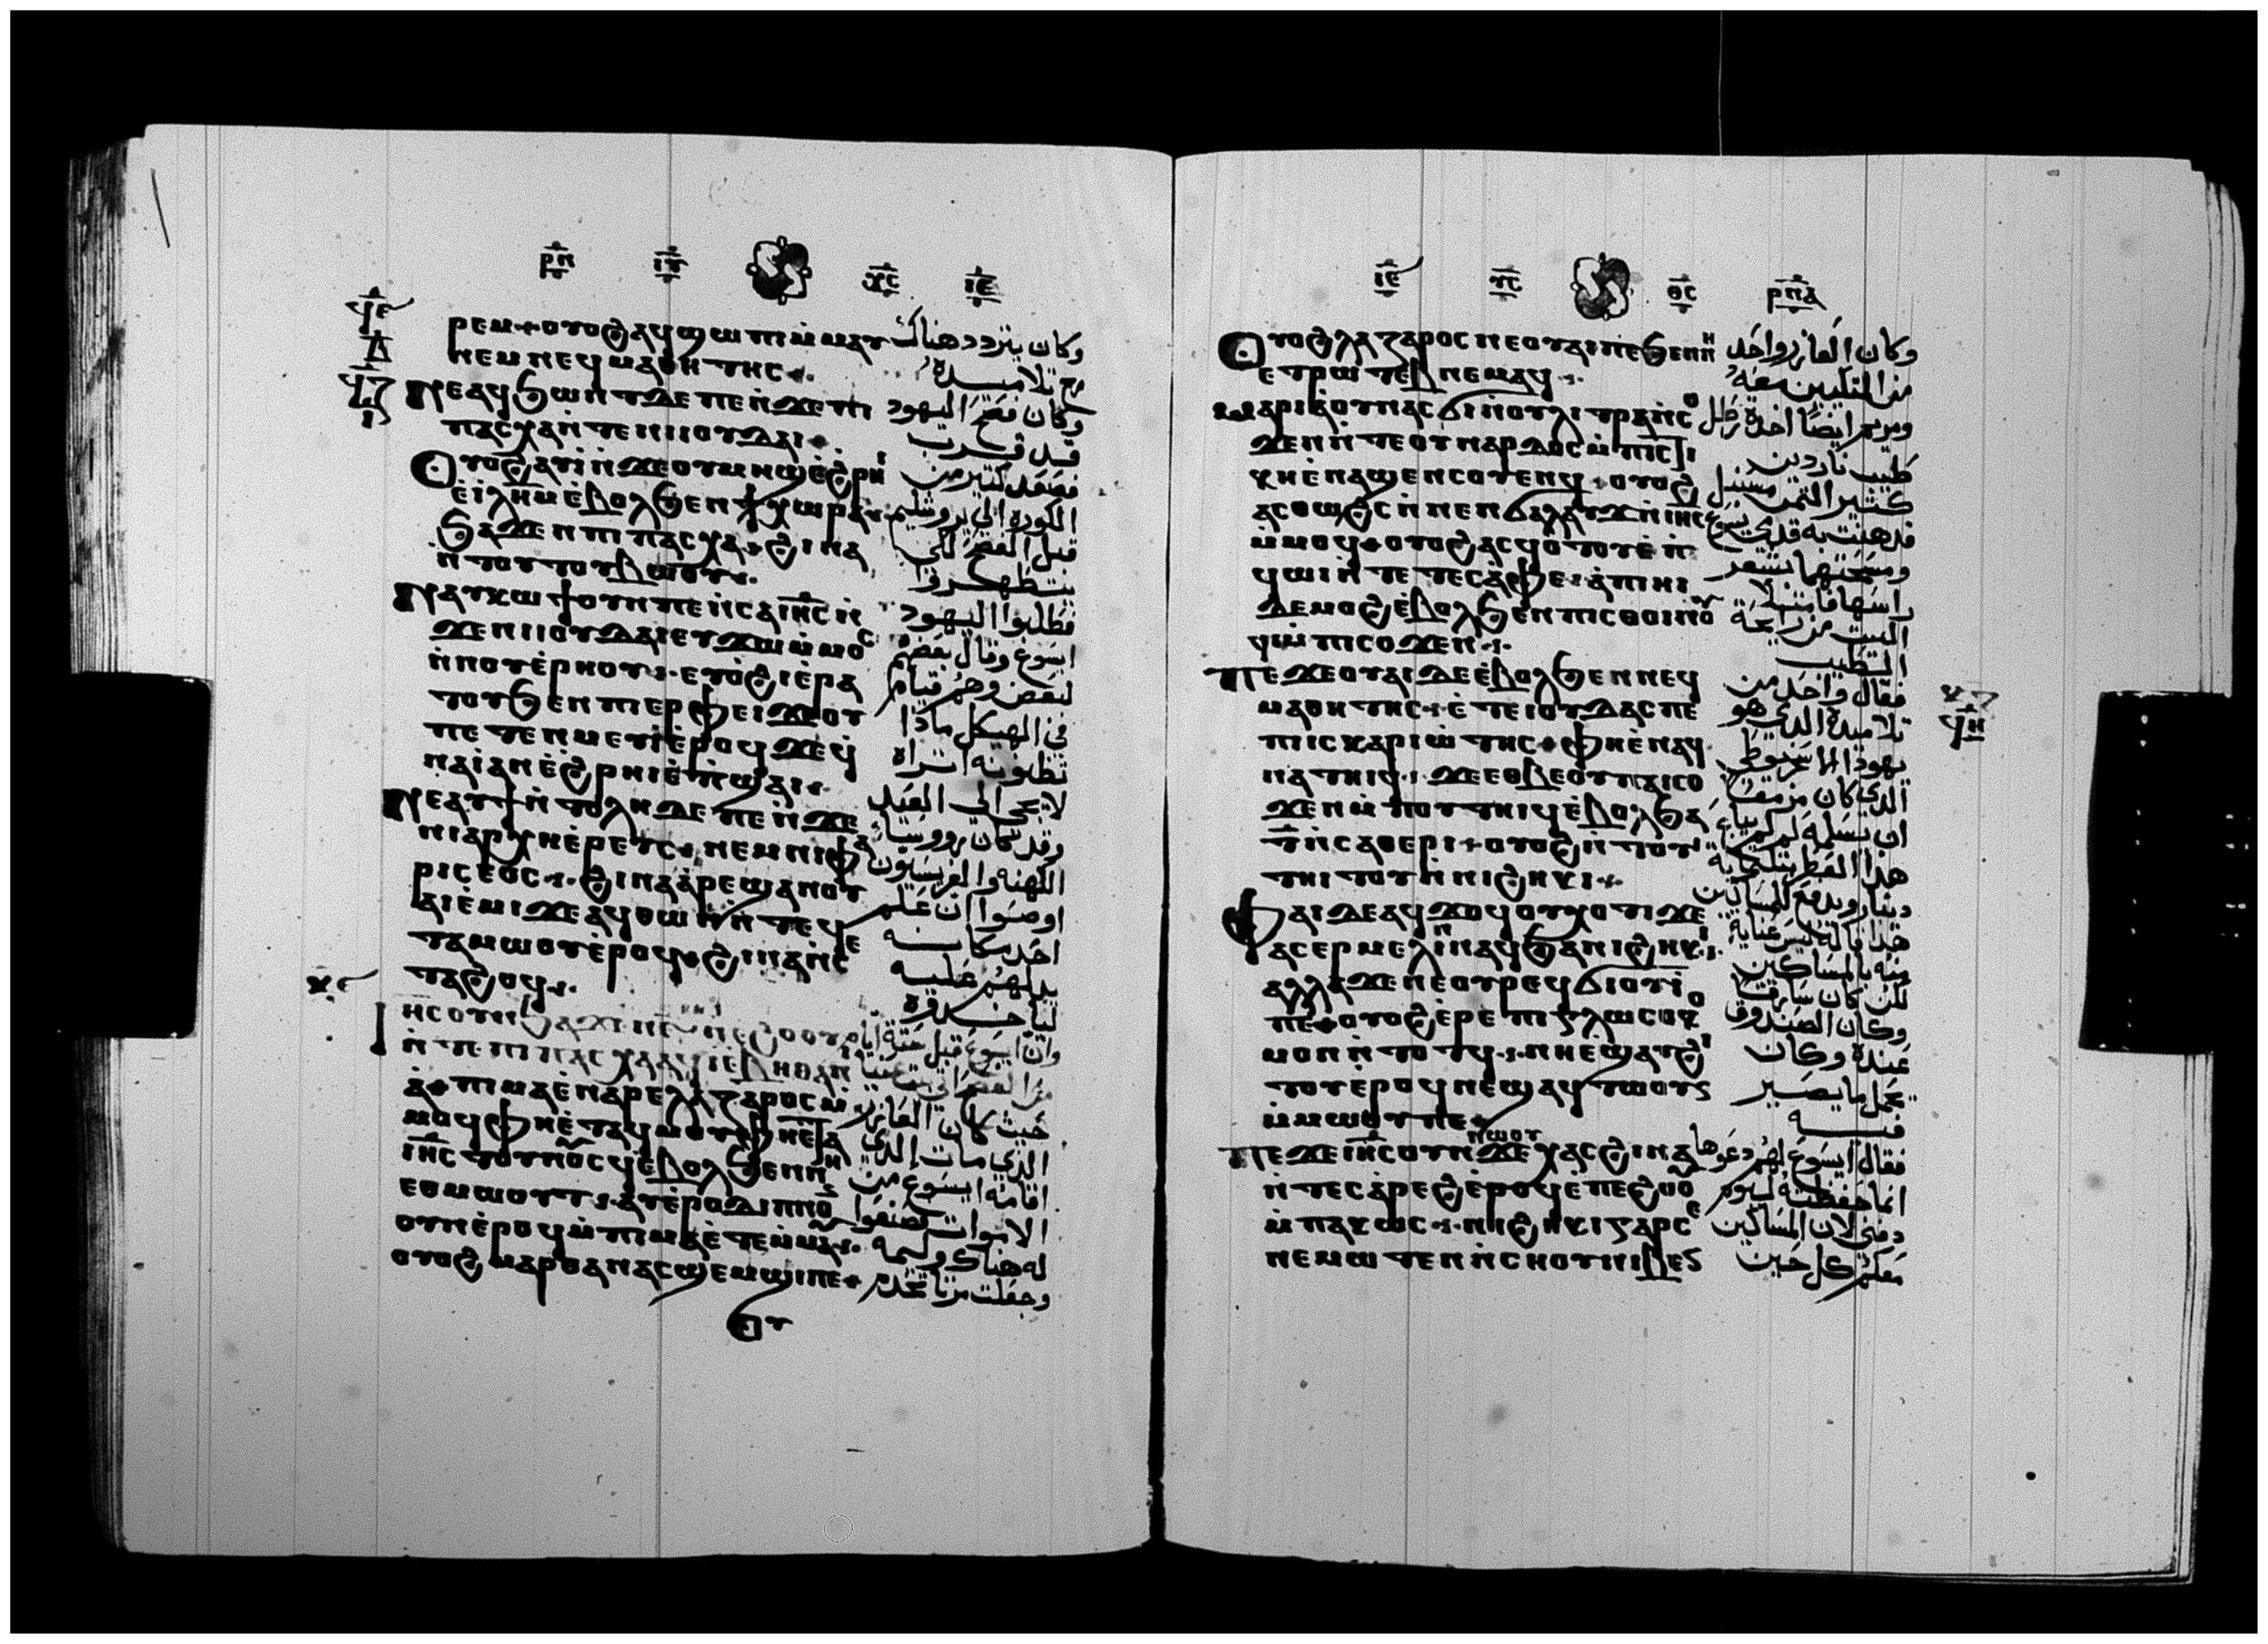 ⲣⲡ ⲓⲅ ⲭⲥ ⲓⲉ
ⲣⲉⲙ ⲟⲩⲟϩ ⲁϥϣⲱⲡⲓ ⲙ̀ⲙⲁⲩ
ⲛⲉⲙ ⲛⲉϥⲙⲁⲑⲏⲧⲏⲥ
ⲛⲉⲁϥϧⲱⲛⲧ ⲇⲉ ⲡⲉ ⲛ̀ϫⲉ ⲡⲓ
ⲡⲁⲥⲭⲁ ⲛ̀ⲧⲉ ⲛⲓⲓⲟⲩⲇⲁⲓ
ⲟⲩⲟϩ ⲁⲩⲓ̀ ⲛ̀ϫⲉ ⲟⲩⲙⲏϣ ⲉ̀ϩⲣⲏⲓ
ⲉ̀ⲓ̀ⲗⲏⲙ ⲉ̀ⲃⲟⲗϧⲉⲛ ϯⲭⲱⲣⲁ
ϧⲁϫⲉⲛ ⲡⲓⲡⲁⲥⲭⲁ ϩⲓⲛⲁ
ⲛ̀ⲧⲟⲩⲧⲟⲩⲃⲱⲟⲩ
ⲛⲁⲩⲕⲱϯ ⲟⲩⲛ ⲡⲉ ⲛ̀ⲥⲁ ⲓⲏⲥ ⲛ̀
ϫⲉ ⲛⲓⲓⲟⲩⲇⲁⲓ ⲉⲩϫⲱ ⲙ̀ⲙⲟⲥ
ⲛ̀ⲛⲟⲩⲉ̀ⲣⲏⲟⲩ ⲉⲩⲟ̀ϩⲓ ⲉ̀ⲣⲁ
ⲧⲟⲩ ϧⲉⲛ ⲡⲓⲉⲣⲫⲉⲓ ϫⲉ ⲟⲩ
ⲡⲉⲧⲉⲛⲙⲉⲩⲓ̀ ⲉ̀ⲣⲟϥ ϫⲉ ϥ̀
ⲛⲁⲓ̀ ⲁⲛ ⲉ̀ϩⲣⲏⲓ ⲉ̀ⲡ̀ϣⲁⲓ
ⲛⲉⲁⲩϯ ⲛ̀ⲧⲟⲗⲏ ⲇⲉ ⲡⲉ ⲛ̀ϫⲉ
ⲛⲓⲁⲣⲭⲏⲉ̀ⲣⲉⲩⲥ ⲛⲉⲙ ⲛⲓⲫⲁ
ⲣⲓⲥⲉⲟⲥ ϩⲓⲛⲁ ⲁ̀ⲣⲉϣⲁⲛ ⲟⲩ
ⲁⲓ ⲉ̀ⲙⲓ ϫⲉ ⲁϥⲑⲱⲛ ⲛ̀ⲧⲉϥ
ⲧⲁⲙⲱⲟⲩ ⲉ̀ⲣⲟϥ ϩⲓⲛⲁ ⲛ̀ⲥⲉ
ⲧⲁϩⲟϥ
ⲓⲏⲥ ⲟⲩⲛ ϧⲁϫⲉⲛ ⲛ̀ⲉϩⲟⲟⲩ
ⲛ̀ⲧⲉ ⲡⲓⲡⲁⲥⲭⲁ ⲁϥⲓ̀ ⲉ̀ⲃⲏⲑⲁⲛⲓ
ⲁ̀ ⲡⲓⲙⲁ ⲉ̀ⲛⲁⲣⲉ ⲗⲁⲍⲁⲣⲟⲥ ⲙ̀
ⲙⲟϥ ⲫⲏ ⲉ̀ⲧⲁϥⲙⲟⲩ ⲫⲏ ⲉⲧⲁ
ⲓⲏⲥ ⲧⲟⲩⲛⲟⲥϥ ⲉ̀ⲃⲟⲗϧⲉⲛ ⲛⲏ
ⲉⲑⲙⲱⲟⲩⲧ ⲁⲩⲉ̀ⲣ ⲟⲩⲇⲓⲡⲛⲟⲛ
ⲟⲩⲛ ⲉ̀ⲣⲟϥ ⲙ̀ⲡⲓⲙⲁ ⲉ̀ⲧⲉⲙ̀ⲙⲁⲩ
ⲟⲩⲟϩ ⲙⲁⲣⲑⲁ ⲛⲁⲥϣⲉⲙϣⲓ ⲡⲉ
ⲟⲩ
وكان يتردد هناك
مع تلاميذه
وكان فصح اليهود
قد قرب
فصعد كثير من
الكورة الى يروشليم
قبل الفصح لكي
يتطهروا
فطلبوا اليهود
ايسوع وقال بعضهم
لبعض وهم قيام
في الهيكل ماذا
تظنونه اتراه
لا يجي الى العيد
وقد كان رووسا
الكهنة والفريسيون
اوصوا ان علم
احد مكانه
يدلهم عليه
لياخذوه
وان ايسوع قبل ستة ايام
حيث كان العازر
الذي مات الذي
اقامه ايسوع من
الاموات فصنعوا
له هناك وليمه
وجعلت مرثا تخدم
ⲓⲉ ⲅⲥ ⲑⲥ ⲣⲡⲁ
ⲟⲩⲟϩ ⲗⲁⲍⲁⲣⲟⲥ ⲛⲉ ⲟⲩⲁⲓ ⲡⲉ ϧⲉⲛ ⲛⲏ
ⲉⲑⲣⲱⲧⲉⲃ ⲛⲉⲙⲁϥ
ⲙⲁⲣⲓⲁ ⲟⲩⲛ ⲁⲥϭⲓ ⲛ̀ⲟⲩⲗⲓⲧⲣⲁ ⲛ̀ⲥⲟ
ϫⲉⲛ ⲛ̀ⲧⲉ ⲟⲩⲛⲁⲣⲇⲟⲥ ⲙ̀ⲡⲓⲥⲧⲓ
ⲕⲏ ⲉ̀ⲛⲁϣⲉⲛⲥⲟⲩⲉⲛϥ ⲟⲩⲟϩ
ⲁⲥⲑⲱϩⲥ ⲛ̀ⲛⲉⲛϭⲁⲗⲁⲩϫ ⲛ̀ⲓⲏⲥ
ⲙ̀ⲙⲟϥ ⲟⲩⲟϩ ⲁⲥϥⲟⲧⲟⲩ ⲉ̀ⲛ
ϥⲱⲓ ⲛ̀ⲧⲉ ⲧⲉⲥⲁ̀ⲫⲉ ⲁ̀ ⲡⲓⲏⲓ
ⲇⲉ ⲙⲟϩ ⲉ̀ⲃⲟⲗϧⲉⲛ ⲡⲓⲥⲑⲟⲓⲛⲟⲩ
ϥⲓ ⲙ̀ⲡⲓⲥⲟϫⲉⲛ
ⲡⲉϫⲉ ⲟⲩⲁⲓ ⲇⲉ ⲉ̀ⲃⲟⲗϧⲉⲛ ⲛⲉϥ
ⲙⲁⲑⲏⲧⲏⲥ ⲉ̀ⲧⲉ ⲓⲟⲩⲇⲁⲥ ⲡⲉ
ⲡⲓⲥⲕⲁⲣⲓⲱⲧⲏⲥ ⲫⲏ ⲉ̀ⲛⲁϥ
ⲛⲁⲧⲏⲓϥ ϫⲉ ⲉⲑⲃⲉ ⲟⲩ ⲡⲁⲓⲥⲟ
ϫⲉⲛ ⲙ̀ⲡⲟⲩⲧⲏⲓϥ ⲉ̀ⲃⲟⲗ ϧⲁ
ⲧ̅ ⲛ̀ⲥⲁⲑⲉⲣⲓ ⲟⲩⲟϩ ⲛ̀ⲧⲟⲩ
ⲧⲏⲓⲧⲟⲩ ⲛ̀ⲛⲓϩⲏⲕⲓ
ⲫⲁⲓ ⲇⲉ ⲁϥϫⲟϥ ⲟⲩⲭⲟⲧⲓ ϫⲉ
ⲁⲥⲉⲣⲙⲉⲗⲓⲛ ⲛⲁϥ ϧⲁ ⲛⲓϩⲏⲕⲓ
ⲁⲗⲗⲁ ϫⲉ ⲛⲉ ⲟⲩⲣⲉϥϭⲓⲟⲩⲓ̀
ⲡⲉ ⲟⲩⲟϩ ⲉ̀ⲣⲉ ⲡⲓⲅⲗⲱⲥⲟⲕⲟ
ⲙⲟⲛ ⲛ̀ⲧⲟⲧϥ ⲛⲏ ⲉ̀ϣⲁⲩϩⲓ
ⲧⲟⲩ ⲉ̀ⲣⲟϥ ⲛⲉϣⲁϥⲧⲱⲟⲩⲛ
ⲙ̀ⲙⲱⲟⲩ ⲡⲉ
ⲡⲉϫⲉ ⲓⲏⲥ ⲟⲩⲛ ⲛⲱⲟⲩ ϫⲉ ⲭⲁⲥ ϩⲓⲛⲁ
ⲛ̀ⲧⲉⲥⲁ̀ⲣⲉϩ ⲉ̀ⲣⲟϥ ⲉ̀ⲡⲉϩⲟⲟⲩ
ⲙ̀ⲡⲁⲕⲱⲥ ⲛⲓϩⲏⲕⲓ ⲅⲁⲣ ⲥⲉ
ⲛⲉⲙⲱⲧⲉⲛ ⲛ̀ⲥⲏⲟⲩ ⲛⲓⲃⲉⲛ
وكان العازر واحد
من المتكيين معه
ومريم ايضا اخذت رطل
طيب ناردين
كثير الثمن
فدهنت به قدمي يسوع
ومسحتهما بشعر
راسها فامتلا
البيت من رايحة
الطيب
فقال واحد من
تلاميذه الذي هو
يهودا الاسخريوطي
الذي كان مزمعا
ان يسلمه لم لم يباع
هذا العطر بثلثماية
دينار ويدفع للمساكين
هذا قاله ليس عناية
منه بالمساكين
لكن كان سارقا
وكان الصندوق
عنده وكان
يحمل ما يصير
فيه
فقال ايسوع لهم دعوها
انما حفظته ليوم
دفني لان المساكين
معكم كل حين